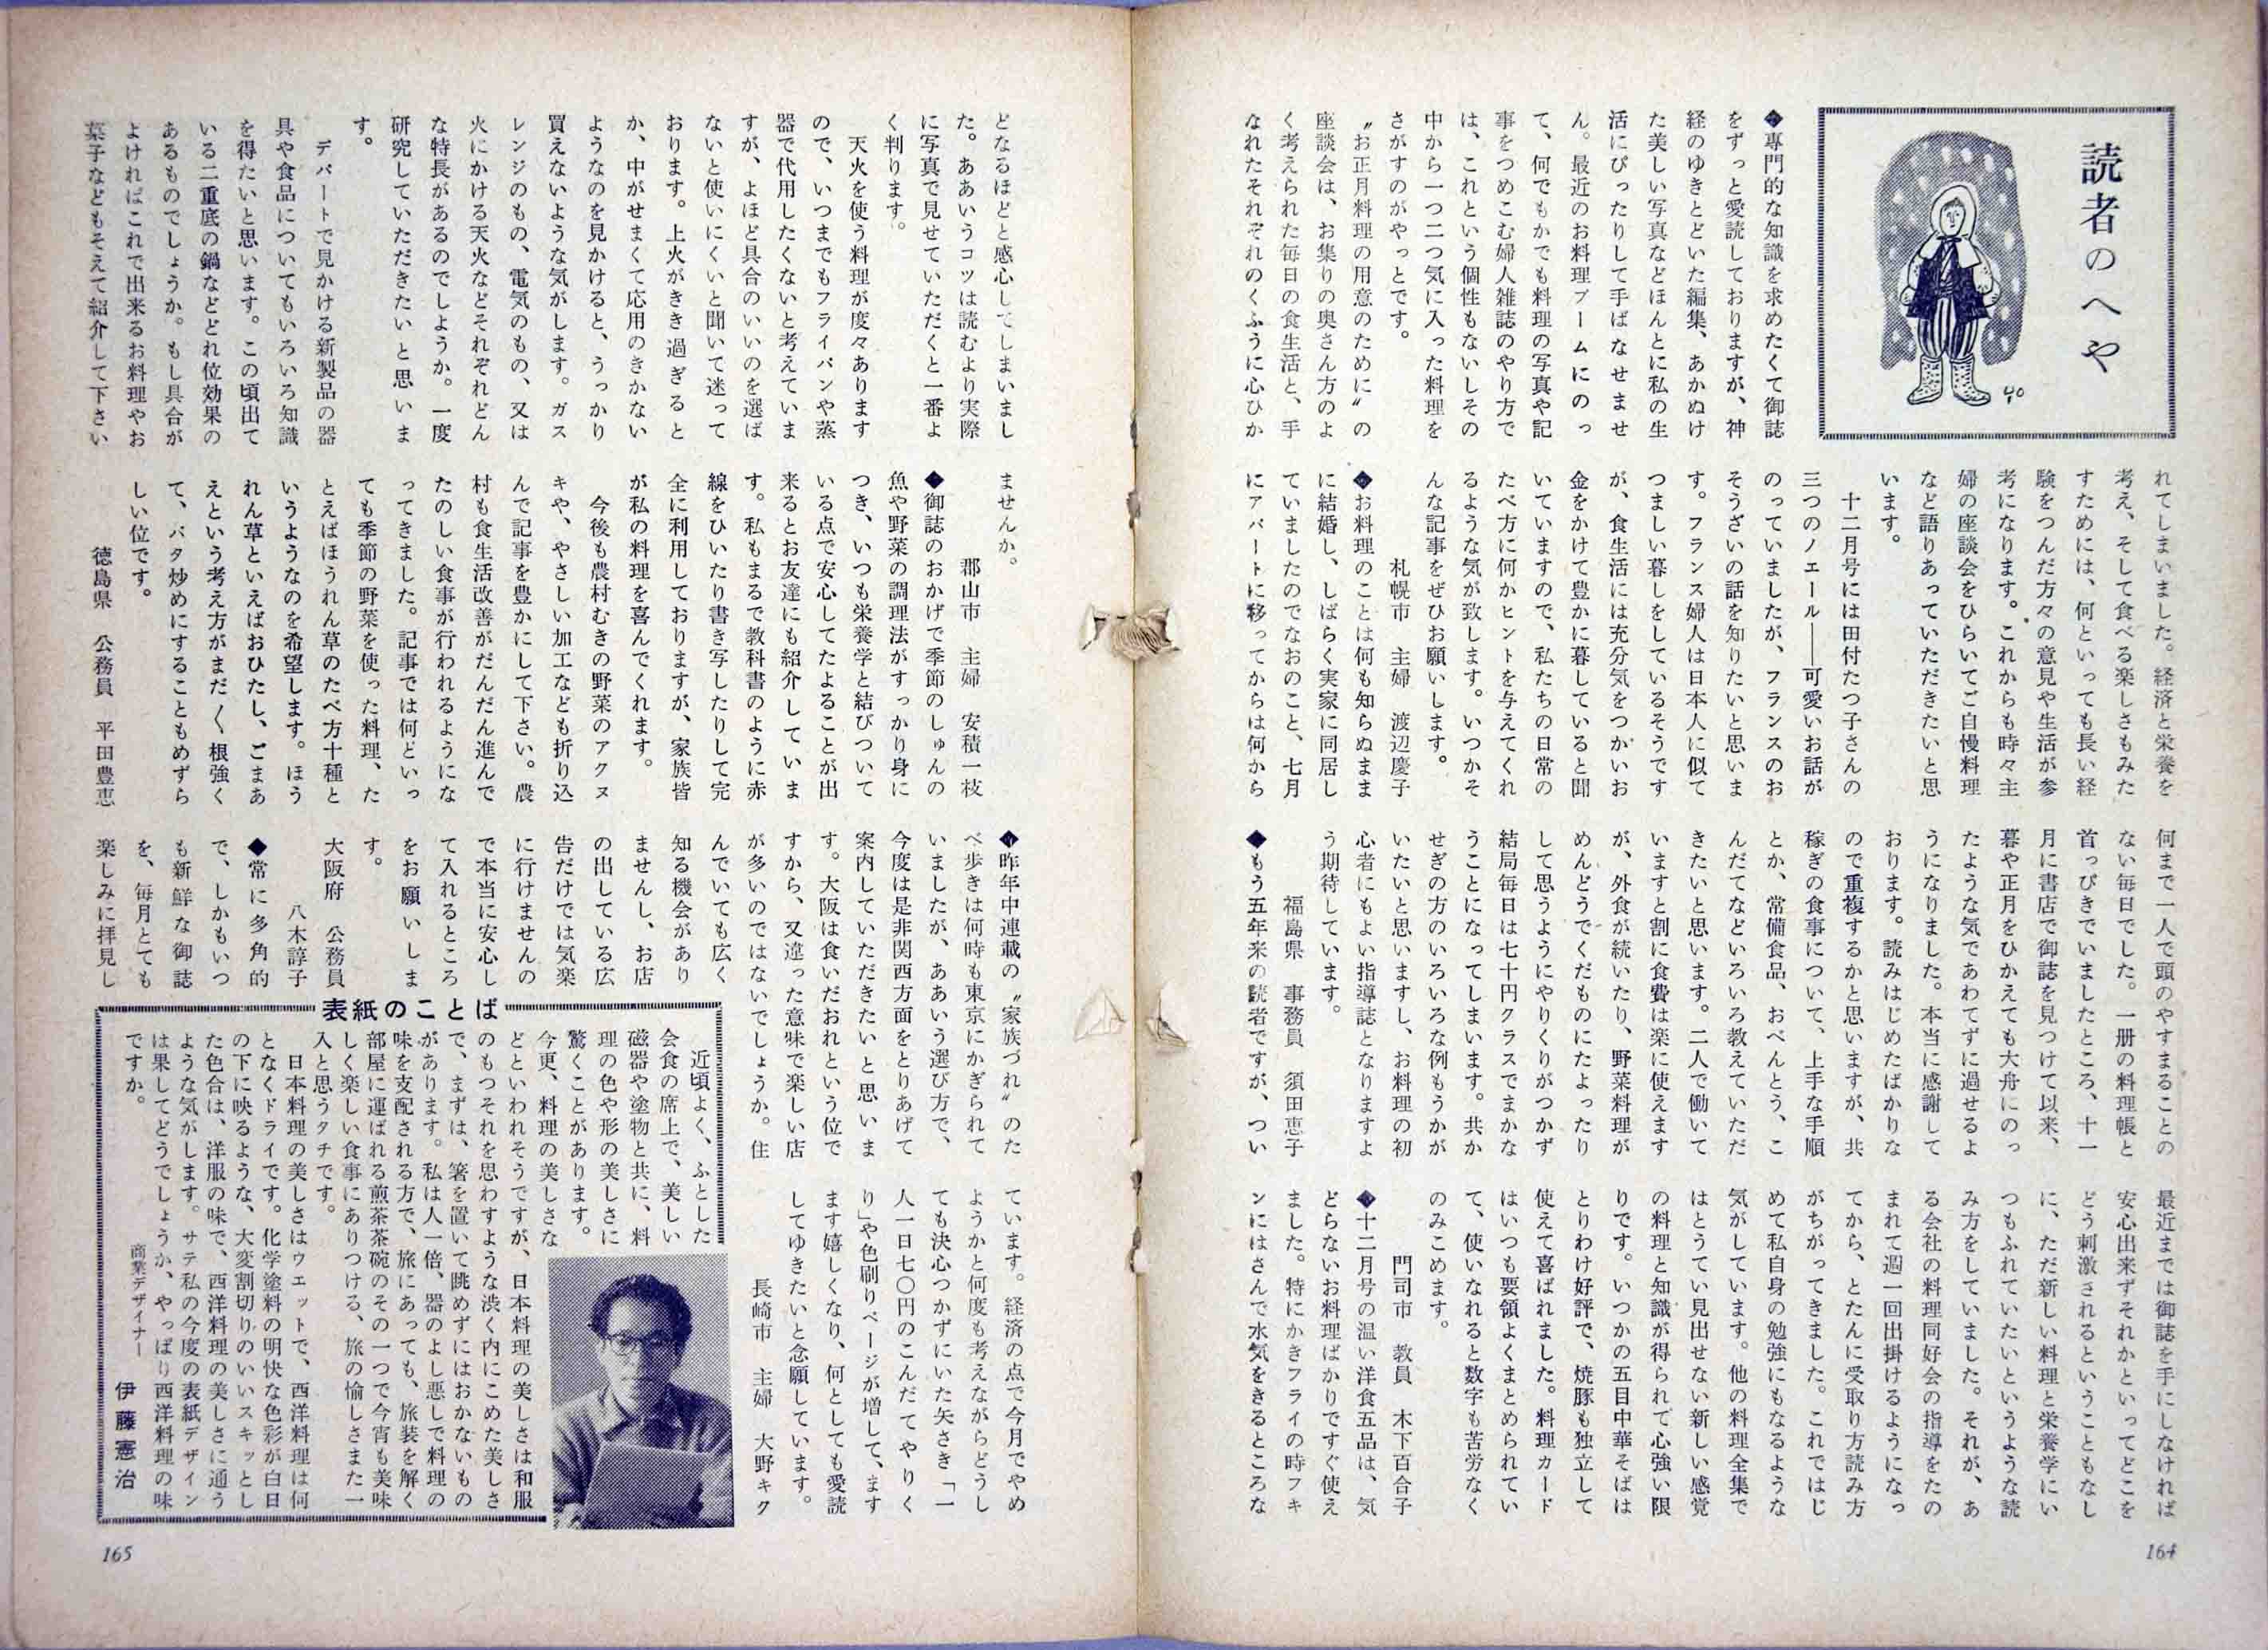 読者のへや
◆専門的な知識を求めたくて御誌
をずっと愛読しておりますが、神
経のゆきとどいた編集、あかぬけ
た美しい写真などほんとに私の生
活にぴったりして手ばなせませ
ん。最近のお料理ブームにのっ
て、何でもかでも料理の写真や記
事をつめこむ婦人雑誌のやり方で
は、これという個性もないしその
中から一つ二つ気に入った料理を
さがすのがやっとです。
〝お正月料理の用意のために〟の
座談会は、お集りの奥さん方のよ
く考えられた毎日の食生活と、手
なれたそれぞれのくふうに心ひか
れてしまいました。経済と栄養を
考え、そして食べる楽しさもみた
すためには、何といっても長い経
験をつんだ方々の意見や生活が参
考になります。これからも時々主
婦の座談会をひらいてご自慢料理
など語りあっていただきたいと思
います。
十二月号には田付たつ子さんの
三つのノエール――可愛いお話が
のっていましたが、フランスのお
そうざいの話を知りたいと思いま
す。フランス婦人は日本人に似て
つましい暮しをしているそうです
が、食生活には充分気をつかいお
金をかけて豊かに暮していると聞
いていますので、私たちの日常の
たべ方に何かヒントを与えてくれ
るような気が致します。いつかそ
んな記事をぜひお願いします。
札幌市 主婦 渡辺慶子
◆お料理のことは何も知らぬまま
に結婚し、しばらく実家に同居し
ていましたのでなおのこと、七月
にアパートに移ってからは何から
何まで一人で頭のやすまることの
ない毎日でした。一冊の料理帳と
首っぴきでいましたところ、十一
月に書店で御誌を見つけて以来、
暮や正月をひかえても大舟にのっ
たような気であわてずに過せるよ
うになりました。本当に感謝して
おります。読みはじめたばかりな
ので重複するかと思いますが、共
稼ぎの食事について、上手な手順
とか、常備食品、おべんとう、こ
んだてなどいろいろ教えていただ
きたいと思います。二人で働いて
いますと割に食費は楽に使えます
が、外食が続いたり、野菜料理が
めんどうでくだものにたよったり
して思うようにやりくりがつかず
結局毎日は七十円クラスでまかな
うことになってしまいます。共か
せぎの方のいろいろな例もうかが
いたいと思いますし、お料理の初
心者にもよい指導誌となりますよ
う期待しています。
福島県 事務員 須田恵子
◆もう五年来の読者ですが、つい
最近までは御誌を手にしなければ
安心出来ずそれかといってどこを
どう刺激されるということもなし
に、ただ新しい料理と栄養学にい
つもふれていたいというような読
み方をしていました。それが、あ
る会社の料理同好会の指導をたの
まれて週一回出掛けるようになっ
てから、とたんに受取り方読み方
がちがってきました。これではじ
めて私自身の勉強にもなるような
気がしています。他の料理全集で
はとうてい見出せない新しい感覚
の料理と知識が得られて心強い限
りです。いつかの五目中華そばは
とりわけ好評で、焼豚も独立して
使えて喜ばれました。料理カード
はいつも要領よくまとめられてい
て、使いなれると数字も苦労なく
のみこめます。
門司市 教員 木下百合子
◆十二月号の温い洋食五品は、気
どらないお料理ばかりですぐ使え
ました。特にかきフライの時フキ
ンにはさんで水気をきるところな
164
どなるほどと感心してしまいまし
た。ああいうコツは読むより実際
に写真で見せていただくと一番よ
く判ります。
天火を使う料理が度々あります
ので、いつまでもフライパンや蒸
器で代用したくないと考えていま
すが、よほど具合のいいのを選ば
ないと使いにくいと聞いて迷って
おります。上火がきき過ぎると
か、中がせまくて応用のきかない
ようなのを見かけると、うっかり
買えないような気がします。ガス
レンジのもの、電気のもの、又は
火にかける天火などそれぞれどん
な特長があるのでしようか。一度
研究していただきたいと思いま
す。
デパートで見かける新製品の器
具や食品についてもいろいろ知識
を得たいと思います。この頃出て
いる二重底の鍋などどれ位効果の
あるものでしょうか。もし具合が
よければこれで出来るお料理やお
菓子などもそえて紹介して下さい
ませんか。
郡山市 主婦 安積一枝
◆御誌のおかげで季節のしゅんの
魚や野菜の調理法がすっかり身に
つき、いつも栄養学と結びついて
いる点で安心してたよることが出
来るとお友達にも紹介していま
す。私もまるで教科書のように赤
線をひいたり書き写したりして完
全に利用しておりますが、家族皆
が私の料理を喜んでくれます。
今後も農村むきの野菜のアクヌ
キや、やさしい加工なども折り込
んで記事を豊かにして下さい。農
村も食生活改善がだんだん進んで
たのしい食事が行われるようにな
ってきました。記事では何どいっ
ても季節の野菜を使った料理、た
とえばほうれん草のたべ方十種と
いうようなのを希望します。ほう
れん草といえばおひたし、ごまあ
えという考え方がまだ〱根強く
て、バタ炒めにすることもめずら
しい位です。
徳島県 公務員 平田豊恵
◆昨年中連載の〝家族づれ〟のた
べ歩きは何時も東京にかぎられて
いましたが、ああいう選び方で、
今度は是非関西方面をとりあげて
案内していただきたいと思いま
す。大阪は食いだおれという位で
すから、又違った意味で楽しい店
が多いのではないでしょうか。住
んでいても広く
知る機会があり
ませんし、お店
の出している広
告だけでは気楽
に行けませんの
で本当に安心し
て入れるところ
をお願いしま
す。
大阪府 公務員
八木諄子
◆常に多角的
で、しかもいつ
も新鮮な御誌
を、毎月とても
楽しみに拝見し
ています。経済の点で今月でやめ
ようかと何度も考えながらどうし
ても決心つかずにいた矢さき「一
人一日七〇円のこんだてやりく
り」や色刷りページが増して、ます
ます嬉しくなり、何としても愛読
してゆきたいと念願しています。
長崎市 主婦 大野キク
表紙のことば
近頃よく、ふとした
会食の席上で、美しい
磁器や塗物と共に、料
理の色や形の美しさに
驚くことがあります。
今更、料理の美しさな
どといわれそうですが、日本料理の美しさは和服
のもつそれを思わすような渋く内にこめた美しさ
で、まずは、箸を置いて眺めずにはおかないもの
があります。私は人一倍、器のよし悪しで料理の
味を支配される方で、旅にあっても、旅装を解く
部屋に運ばれる煎茶茶碗のその一つで今宵も美味
しく楽しい食事にありつける、旅の愉しさまた一
入と思うタチです。
日本料理の美しさはウェットで、西洋料理は何
となくドライです。化学塗料の明快な色彩が白日
の下に映るような、大変割切りのいいスキッとし
た色合は、洋服の味で、西洋料理の美しさに通う
ような気がします。サテ私の今度の表紙デザイン
は果してどうでしょうか、やっぱり西洋料理の味
ですか。
商業デザイナー 伊藤憲治
165